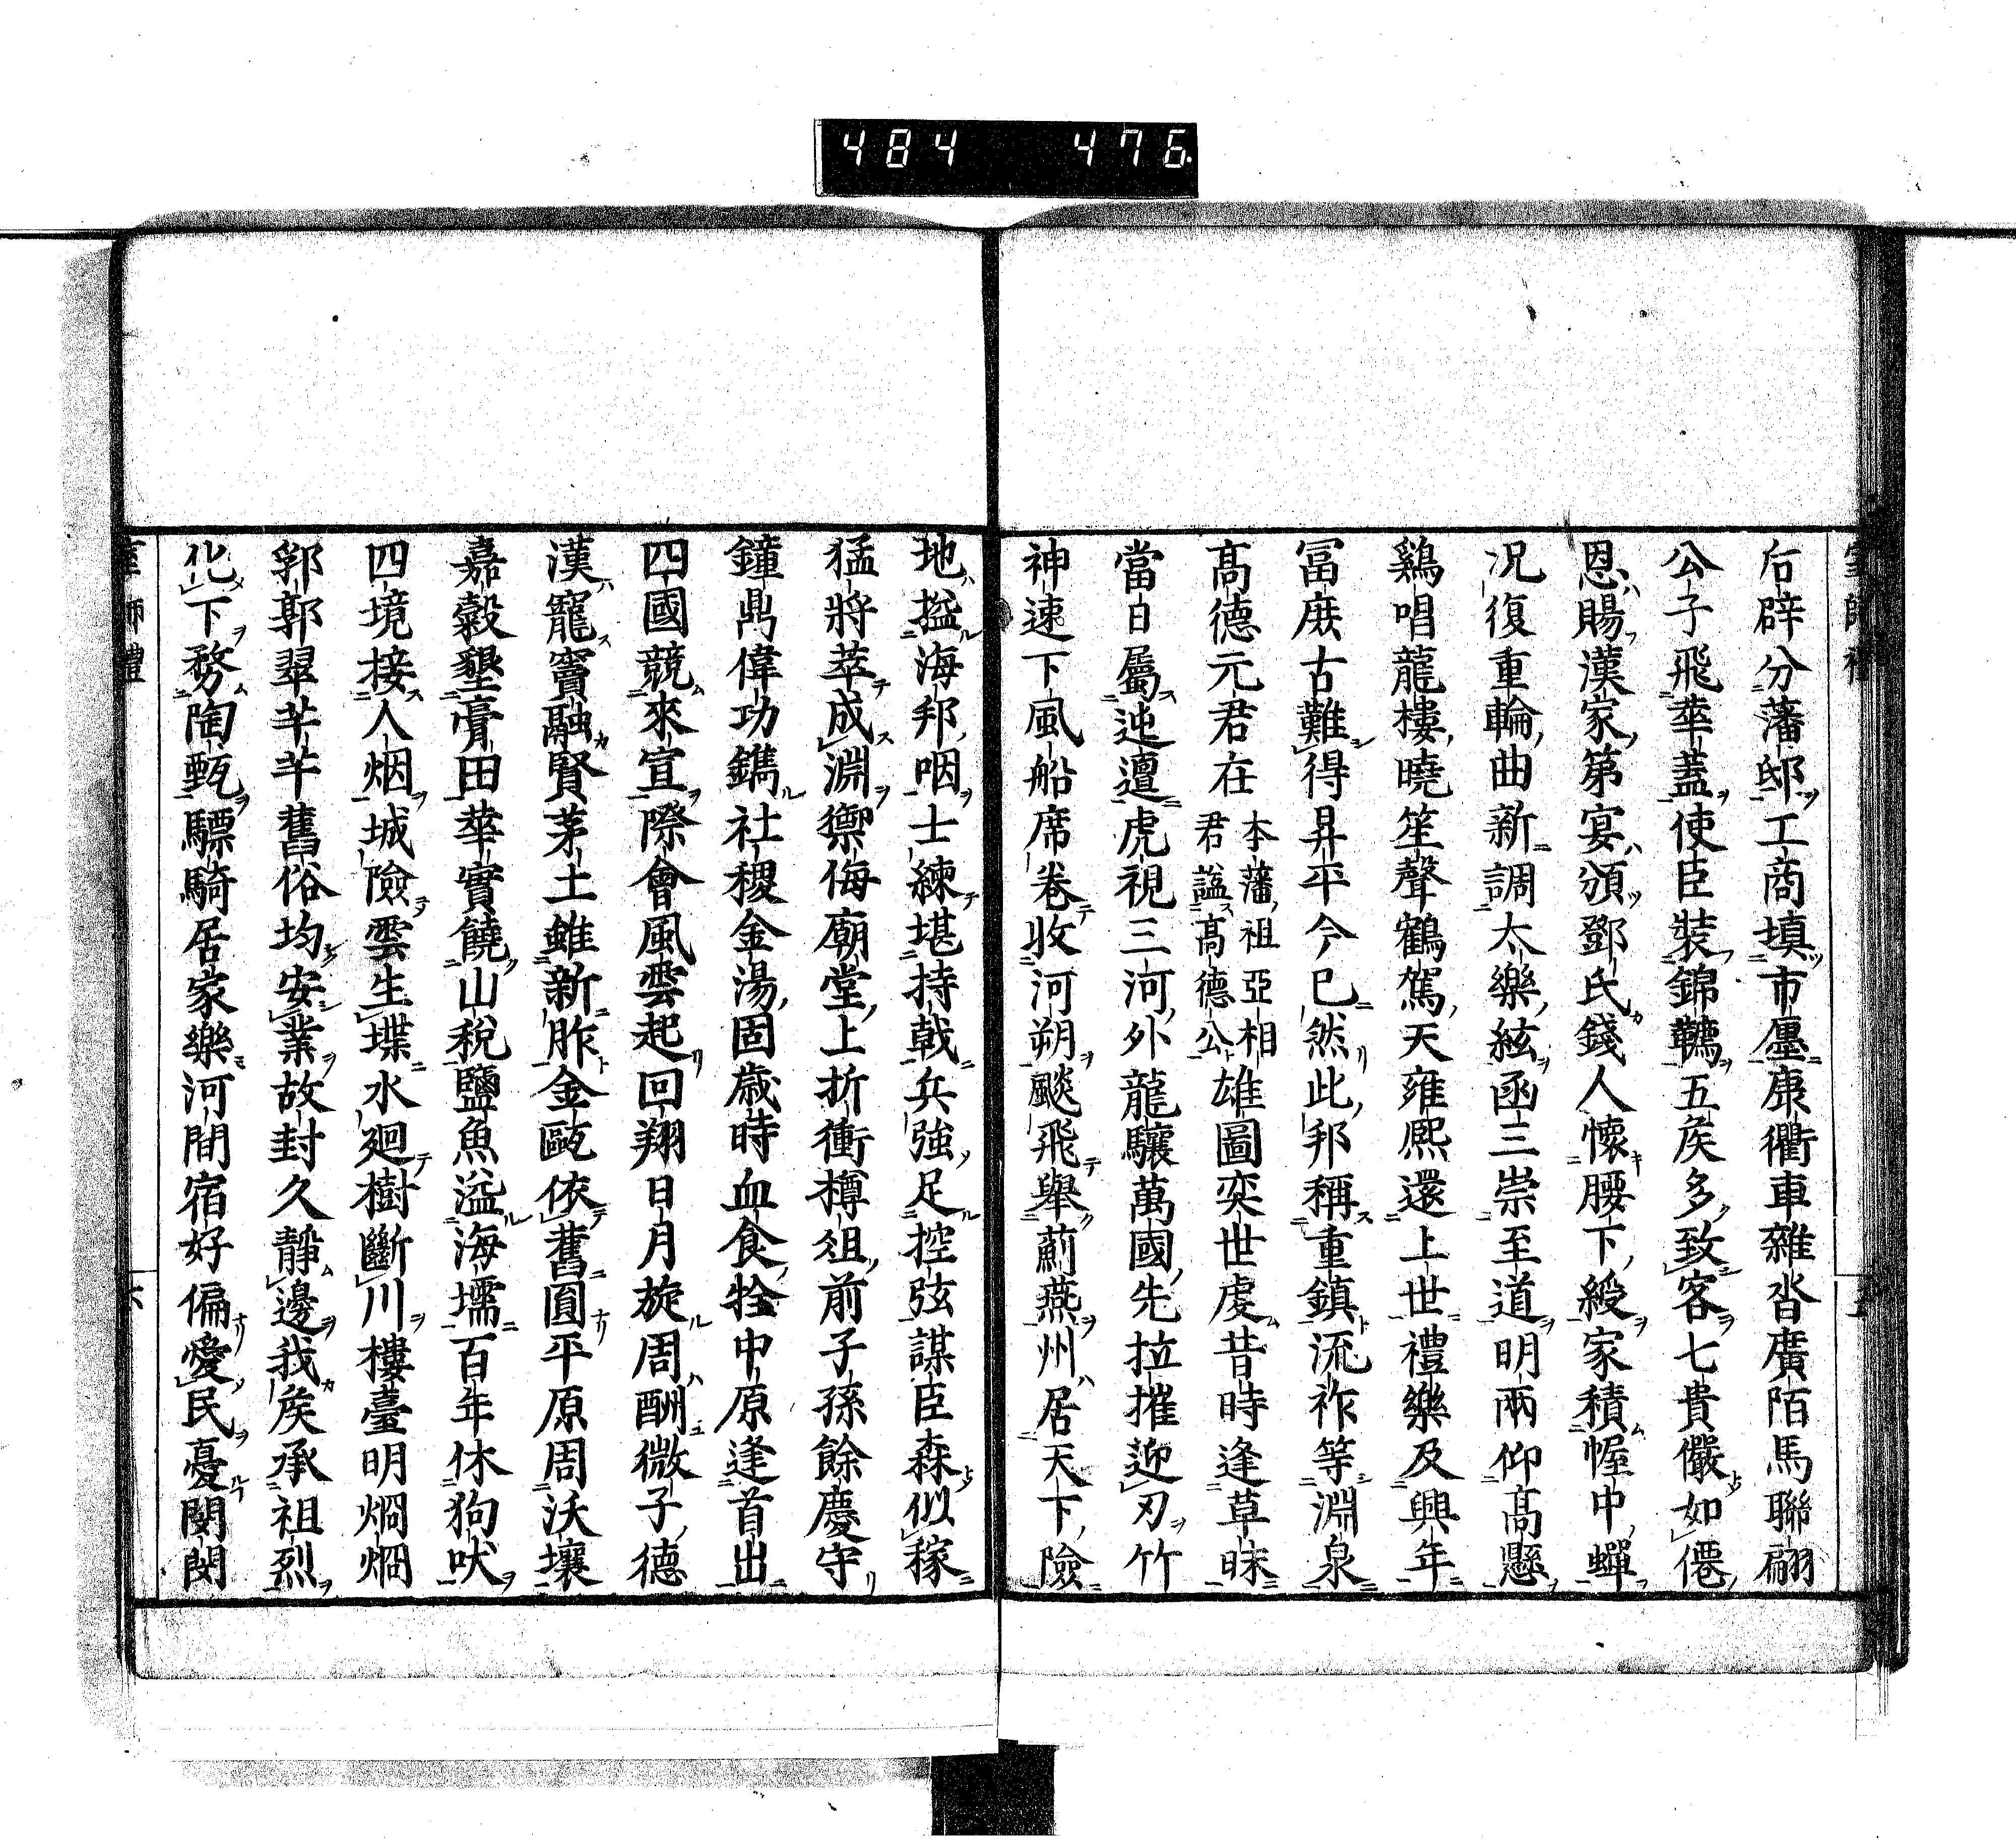 484 476
后辟分藩邸工商填市廛康衢車雜沓廣陌馬聯翩
公子飛華蓋使臣裝錦韉五侯多致客七貴儼如僊
恩賜漢家第宴頒鄧氏錢人懷腰下綬家積幄中蟬
况復重輪曲新調太樂絃函三崇至道明兩仰高懸
鷄唱龍樓曉笙聲鶴駕天雍熙還上世禮樂及興年
冨庶古難得昇平今已然此邦稱重鎮流祚等淵泉
高德元君在
本藩祖亞相
君諡高德公
雄圖奕世虔昔時逢草昧
當日屬迍邅虎視三河外龍驤萬國先拉摧迎刃竹
神速下風船席卷收河朔颷飛舉薊燕州居天下險
地搤海邦咽士練堪持戟兵強足控弦謀臣森似稼
猛將萃成淵禦侮廟堂上折衝樽俎前子孫餘慶守
鐘鼎偉功鐫社稷金湯固歲時血食牷中原逢首出
四國競來宣際會風雲起回翔日月旋周酬微子德
漢寵竇融賢茅土雖新胙金甌依舊圓平原周沃壤
嘉穀墾膏田華實饒山稅鹽魚溢海壖百年休狗吠
四境接人烟城險雲生堞水廻樹斷川樓臺明烱烱
郛郭翠芊芊舊俗均安業故封久靜邊我侯承祖烈
化下務陶甄驃騎居家樂河間宿好偏愛民憂閔閔